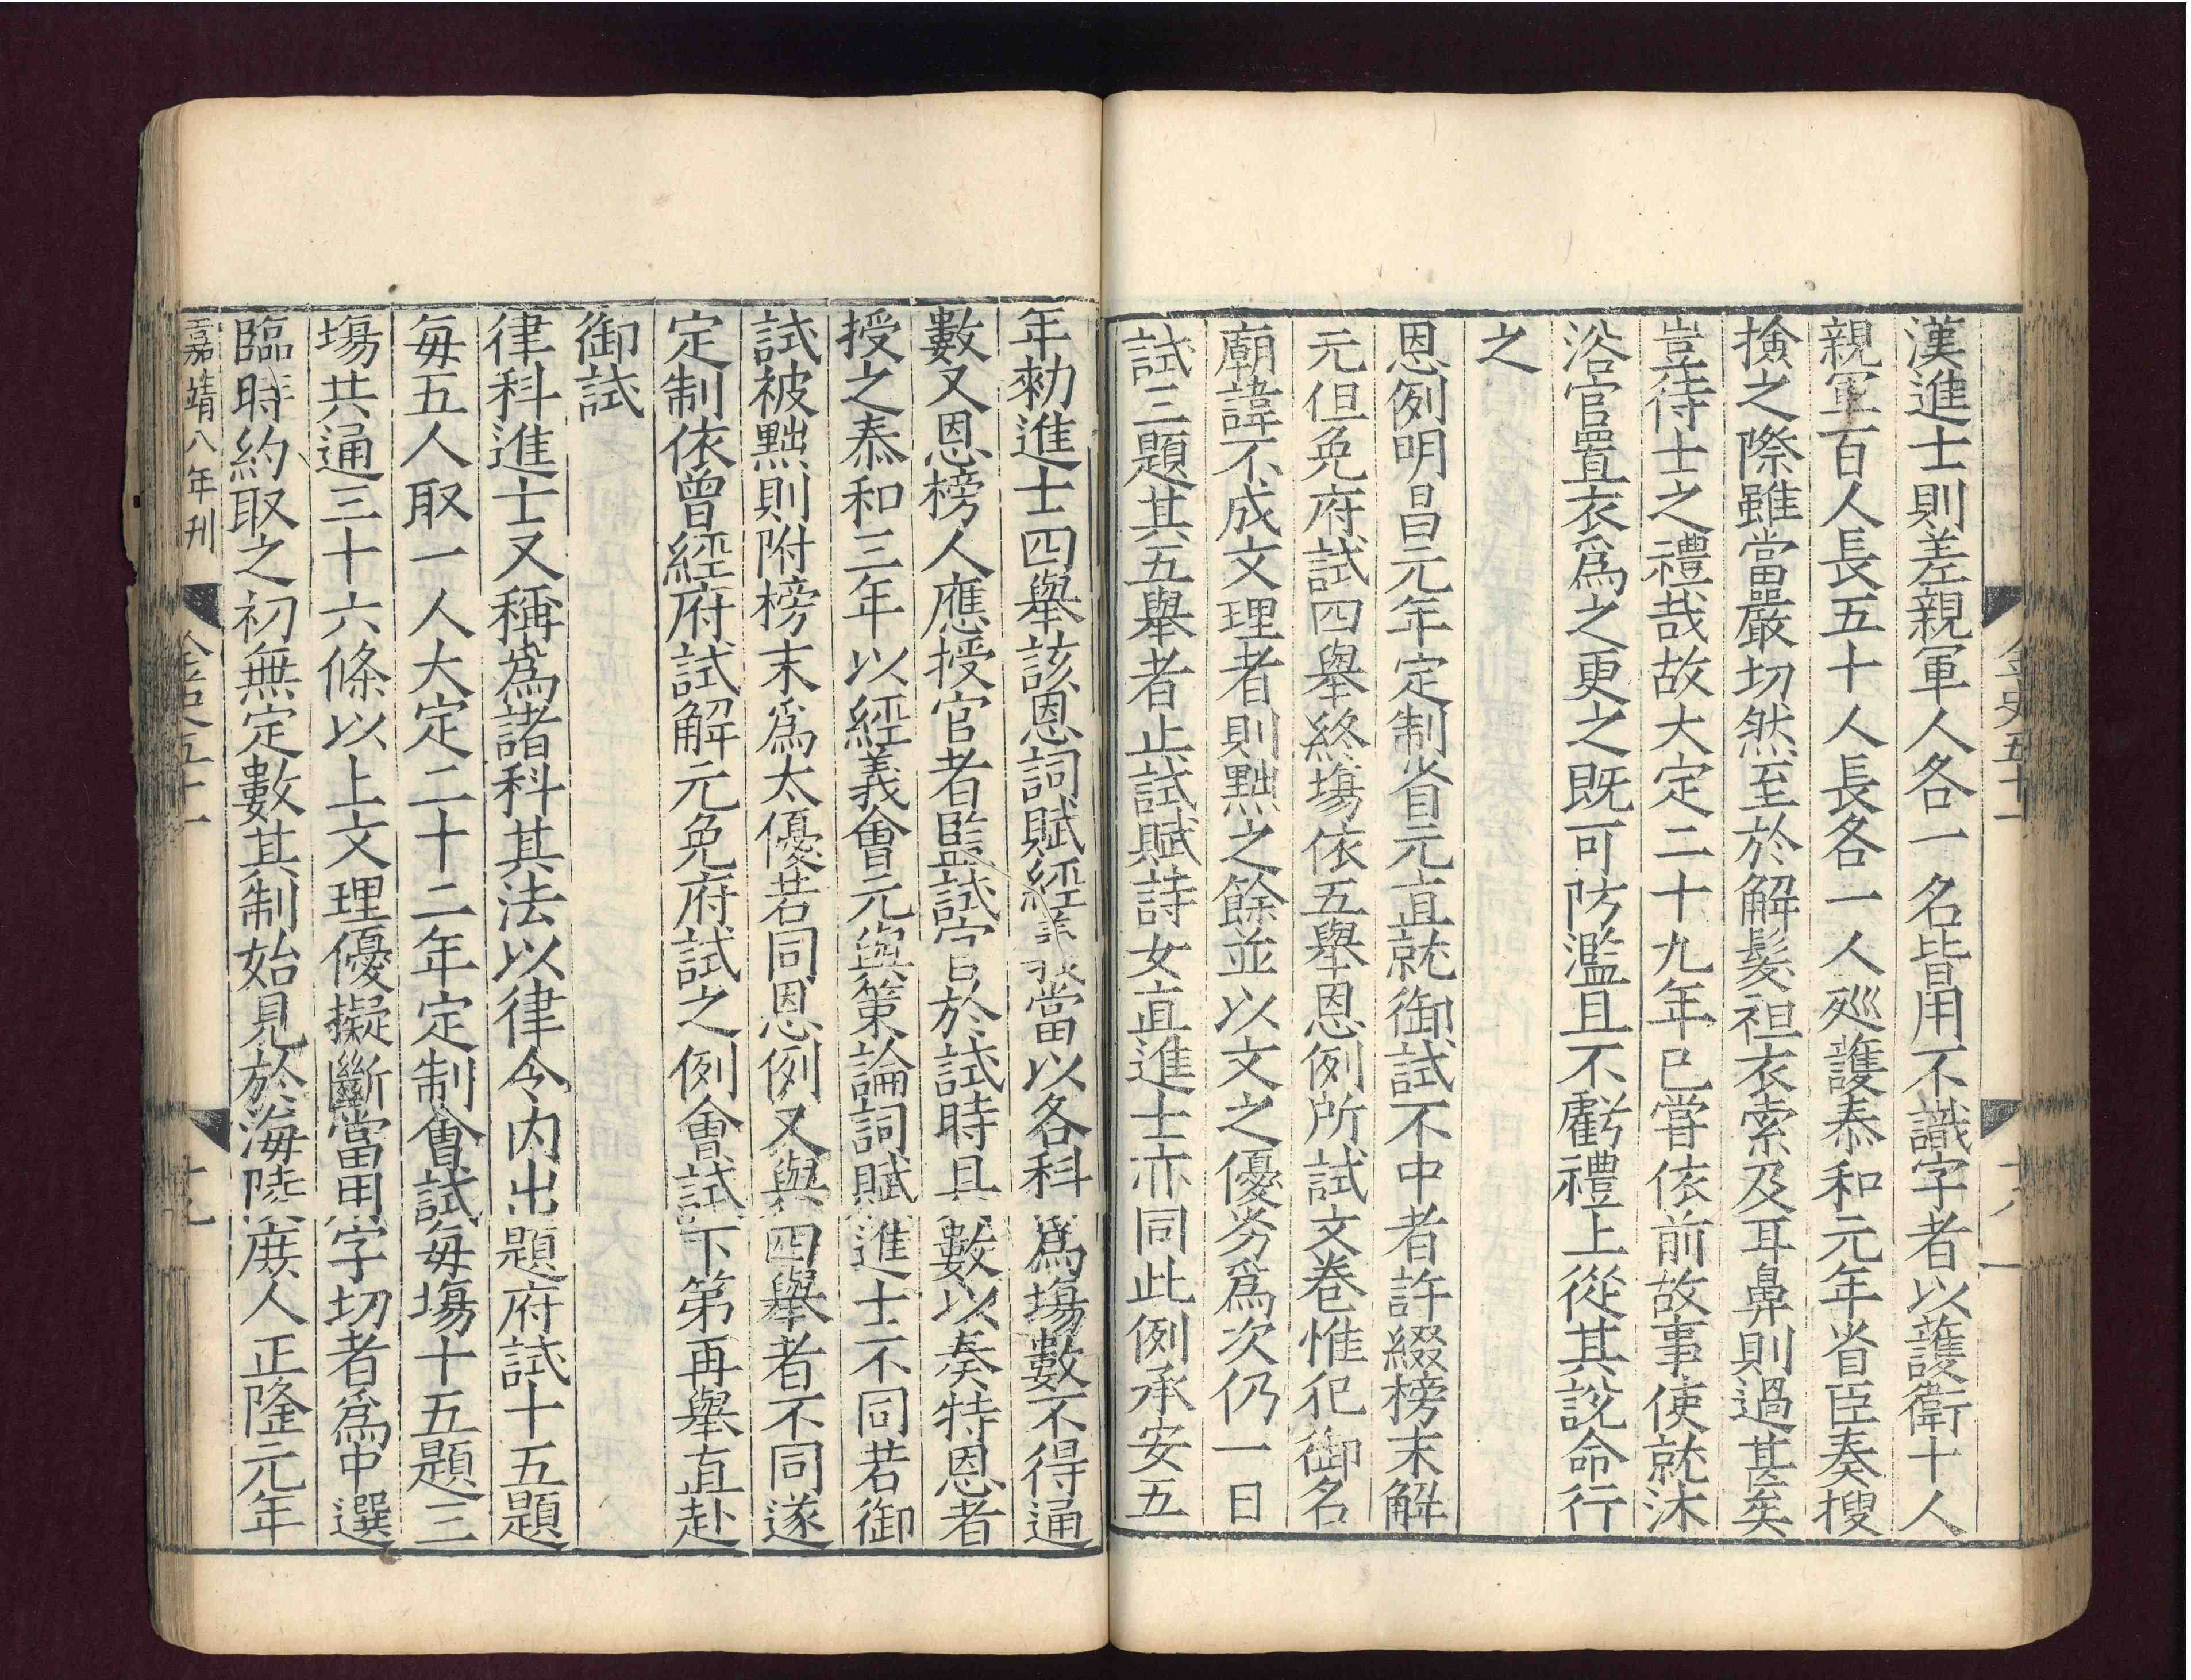 金史五十一
十八
漢進士則差親軍人各一名皆用不識字者以護衛十人
親軍百人長五十人長各一人廵護泰和元年省臣奏搜
撿之際雖當嚴切然至於解髮袒衣索及耳鼻則過甚矣
豈待士之禮哉故大定二十九年已嘗依前故事使就沐
浴官置衣爲之更之既可防濫且不虧禮上從其說命行
之
恩例明昌元年定制省元直就御試不中者許綴榜末解
元但免府試四舉終塲依五舉恩例所試文卷惟犯御名
廟諱不成文理者則黜之餘並以文之優劣爲次仍一日
試三題其五舉者止試賦詩女直進士亦同此例承安五
年勑進士四舉該恩詞賦經義當以各科爲塲數不得通
數又恩榜人應授官者監試官於試時具數以奏特恩者
授之泰和三年以經義會元與策論詞賦進士不同若御
試被黜則附榜末爲太優若同恩例又與四舉者不同遂
定制依曾經府試解元免府試之例會試下第再舉直赴
御試
律科進士又稱爲諸科其法以律令内出題府試十五題
每五人取一人大定二十二年定制會試每塲十五題三
塲共通三十六條以上文理優擬斷當用字切者爲中選
臨時約取之初無定數其制始見於海陵庶人正隆元年
嘉靖八年刊
金史五十一
十九